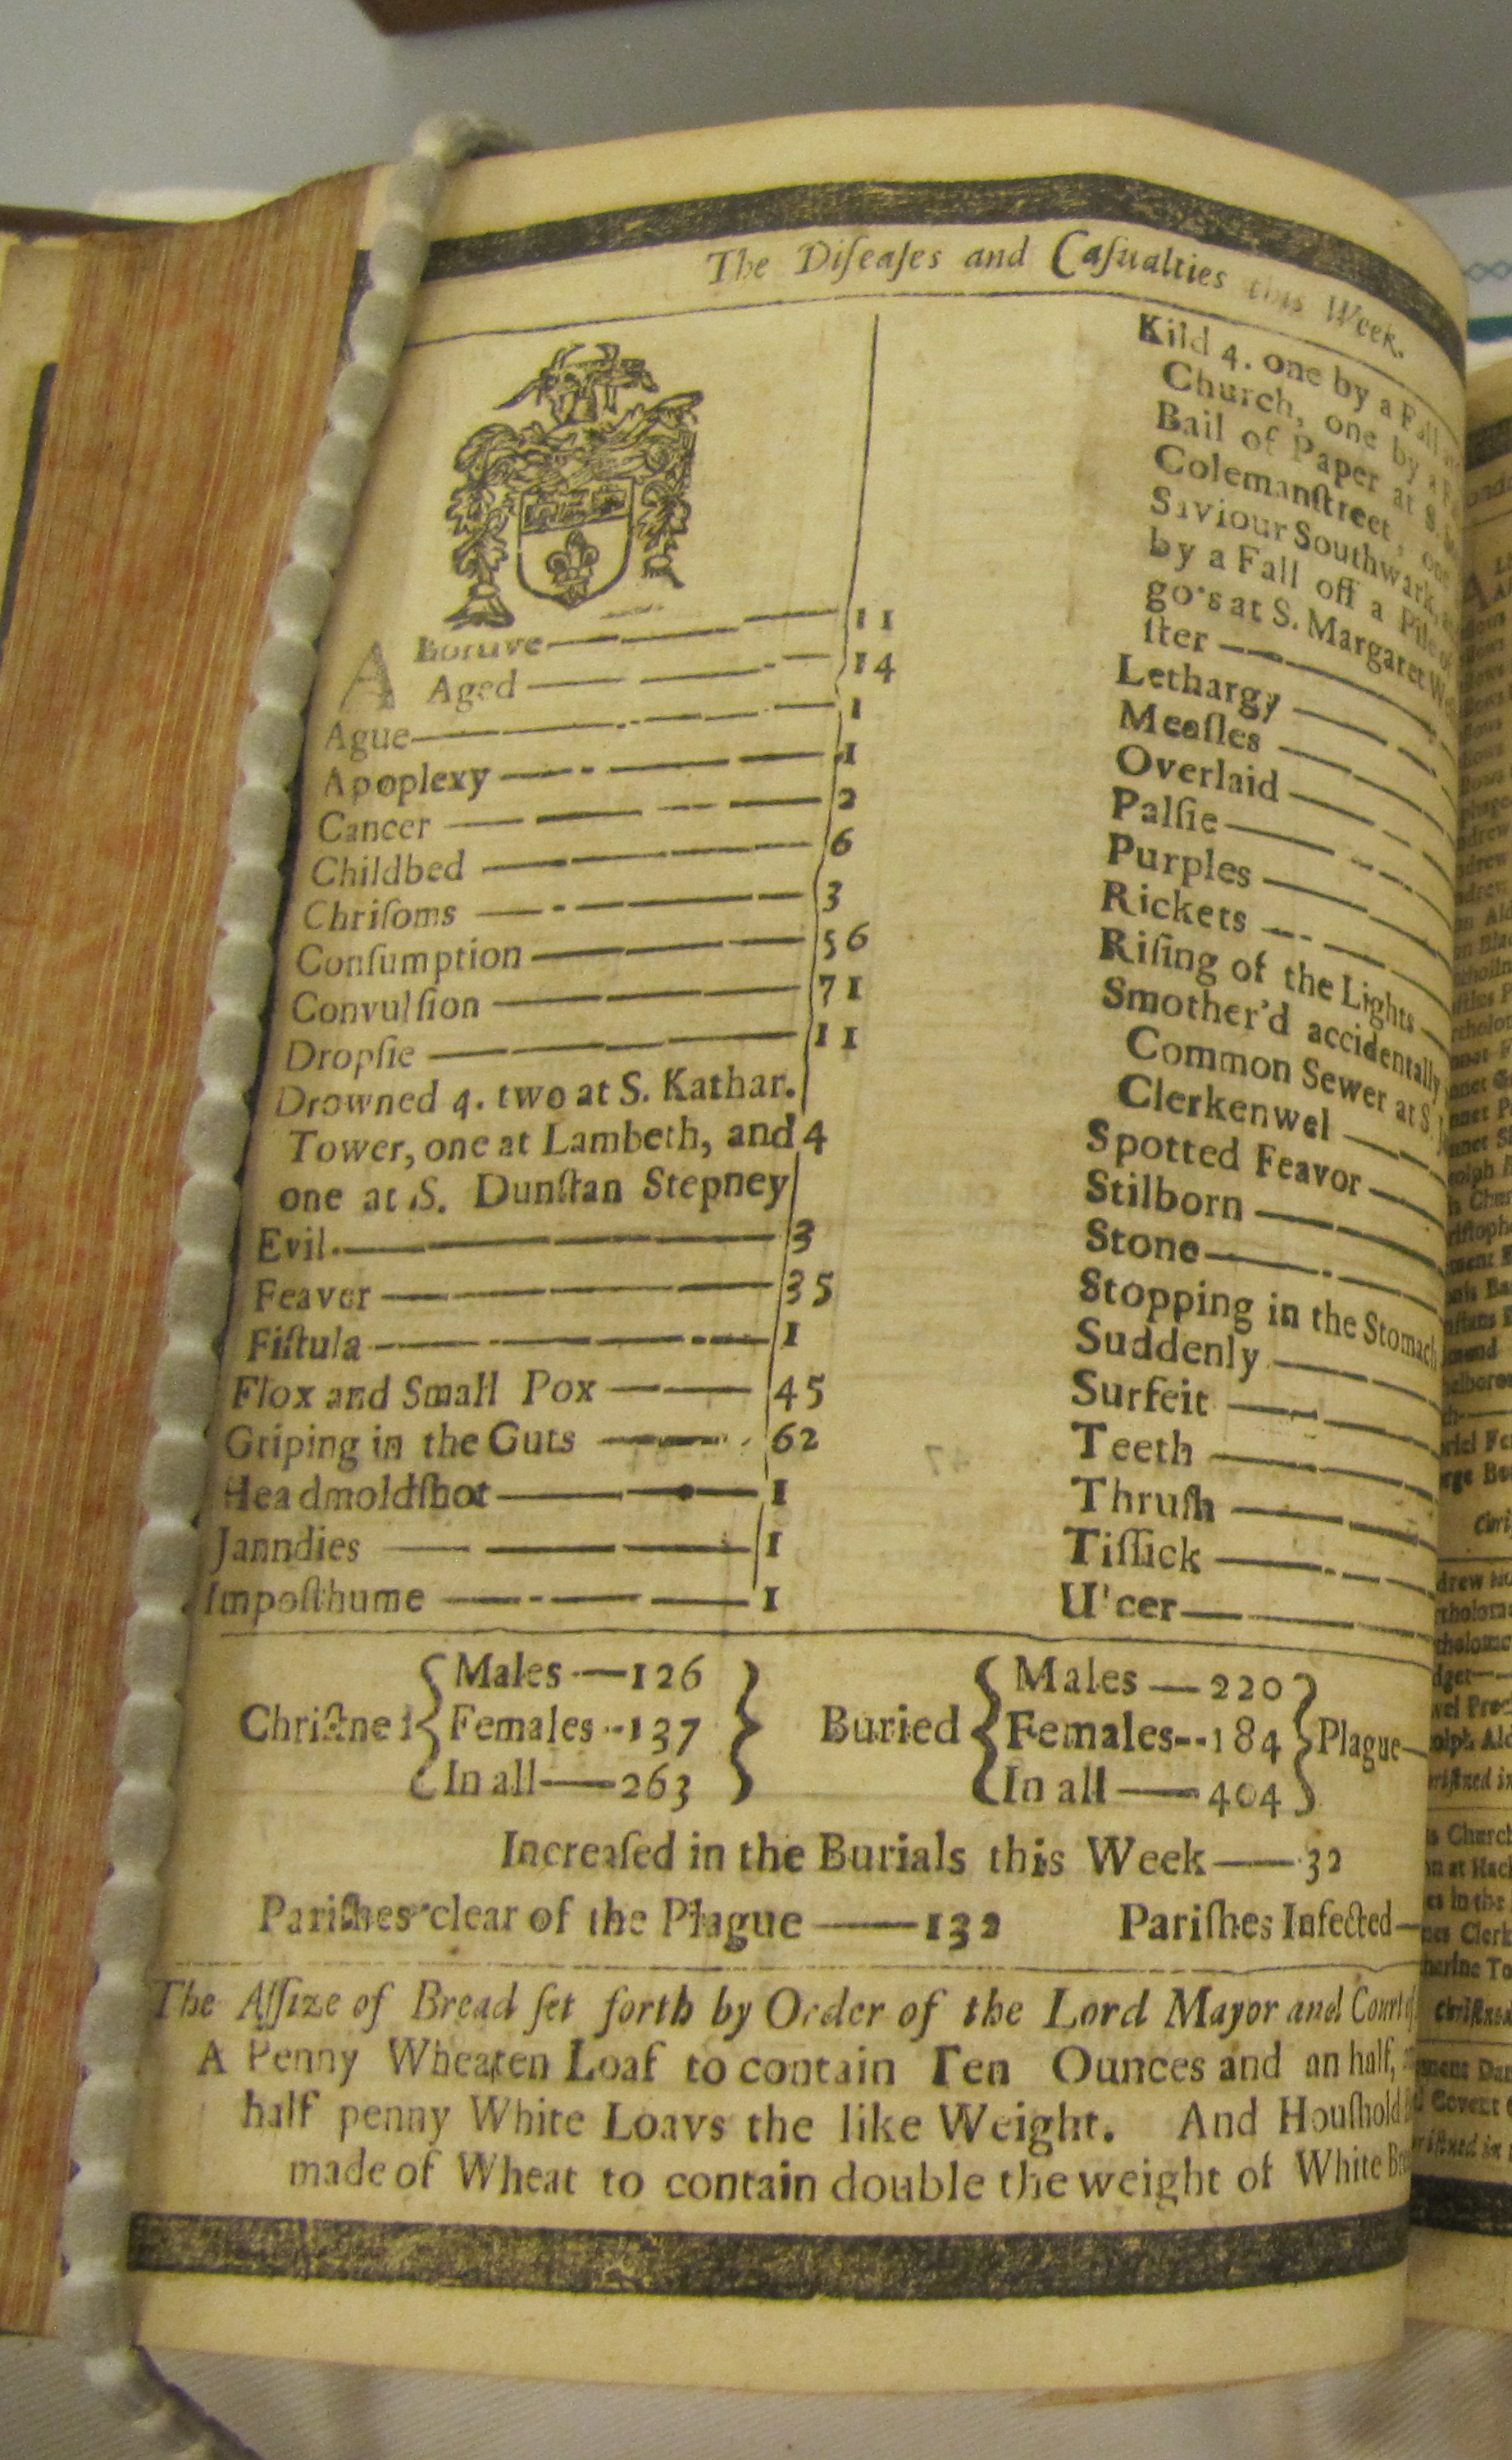 The Diſeaſes and Caſualties this Week.
Abortive 11
Aged 14
Ague 1
Apoplexy 1
Cancer 2
Childbed 6
Chriſoms 3
Conſumption 56
Convulſion 71
Dropſie 11
Drowned 4. two at S. Kathar.
Tower, one at Lambeth, and 4
one at S. Dunſtan Stepney
Evil 3
Feaver 35
Fiſtula 1
Flox and Small Pox 45
Griping in the Guts 62
Headmoldſhot 1
Janndies 1
Impoſthume 1
Kild 4. one by a Fall
Church, one by a
Bail of Paper at S.
Colemanſtreet, one
Saviour Southwark,
by a Fall off a Pile of
go's at S. Margaret
ſter
Lethargy
Meaſles
Overlaid
Palſie
Purples
Rickets
Riſing of the Lights
Smother'd accidentally
Common Sewer at S.
Clerkenwel
Spotted Feavor
Stilborn
Stone
Stopping in the Stomach
Suddenly
Surfeit
Teeth
Thruſh
Tiſſick
Ulcer
Males 126
Chriſtned Females 137
In all 263
Males 220
Buried Females 184 Plague
In all 404
Increaſed in the Burials this Week 32
Pariſhes clear of the Plague 132 Pariſhes Infected
The Aſſize of Bread ſet forth by Order of the Lord Mayor and Court
A Penny Wheaten Loaf to contain Ten Ounces and an half,
half penny White Loavs the like Weight. And Houſhold
made of Wheat to contain double the weight of White